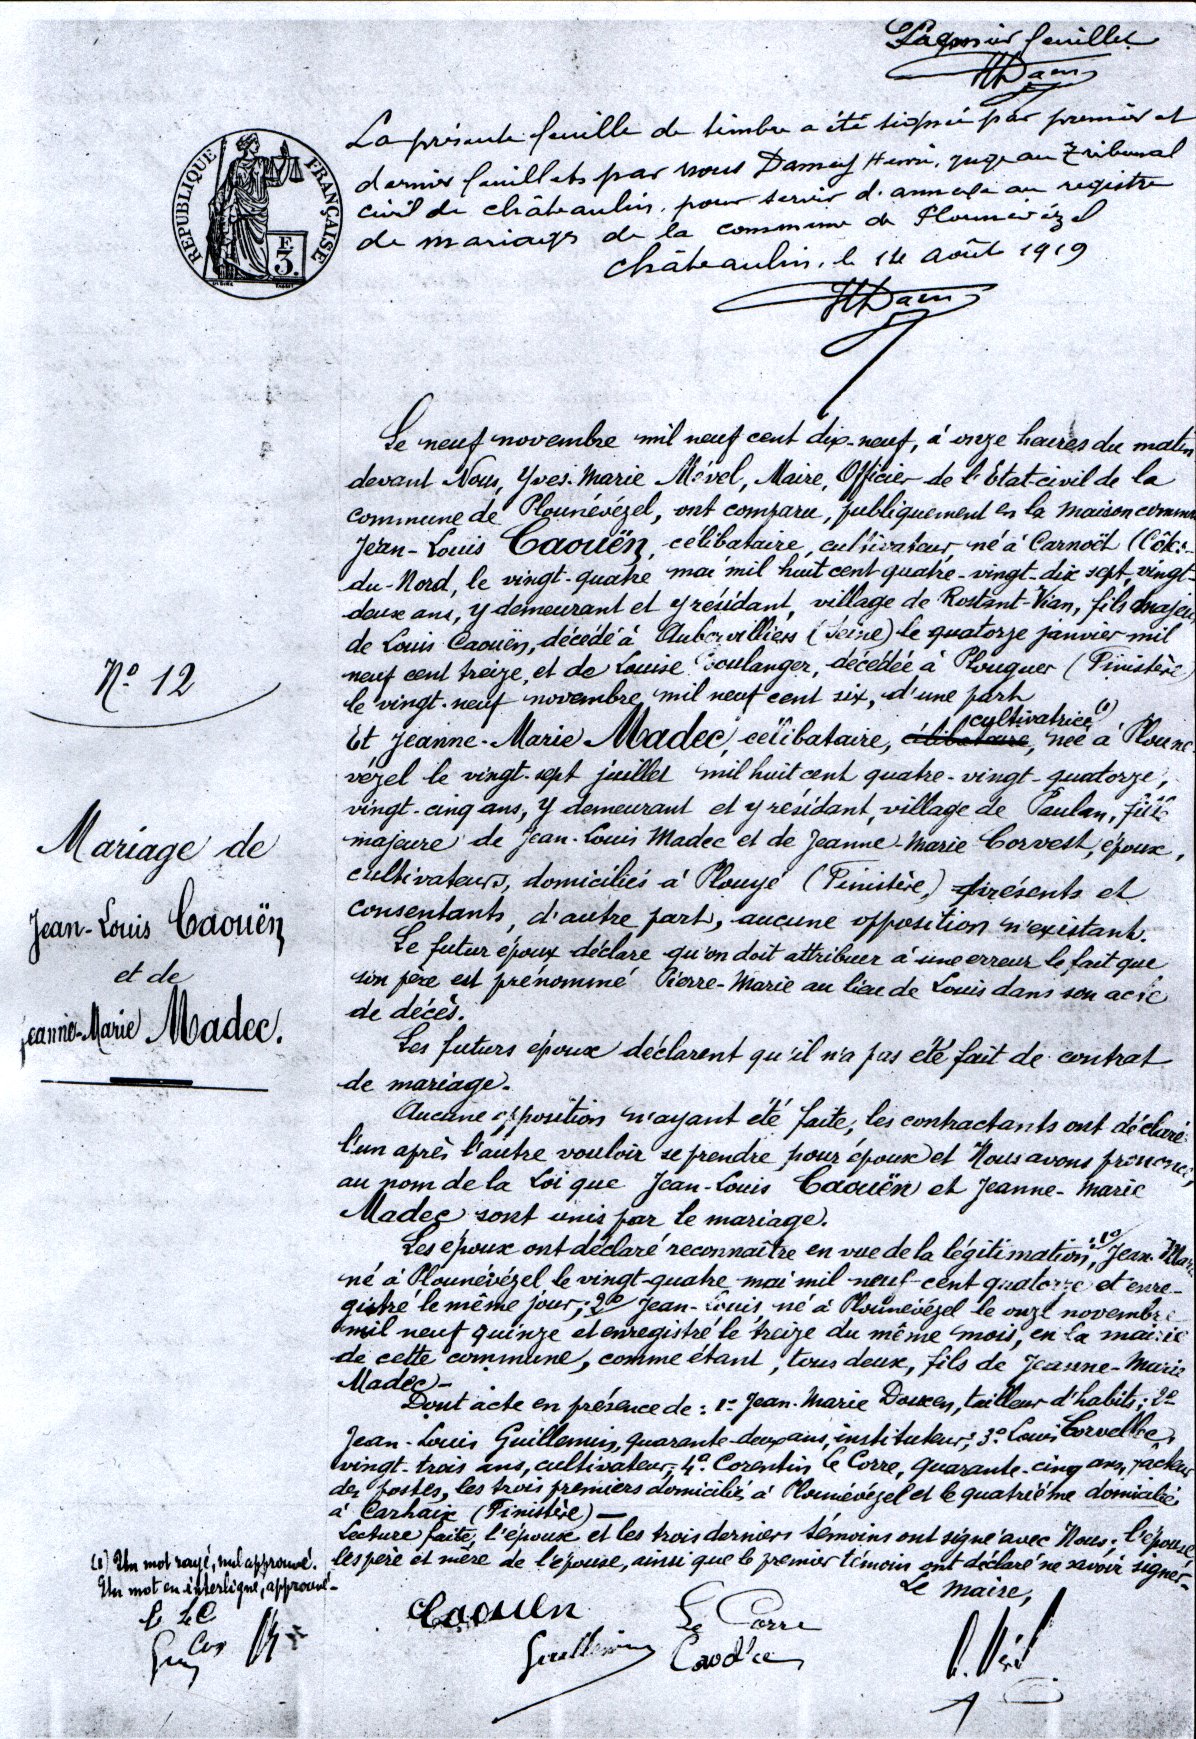 feuillet
HDamy
La présente feuille de timbre a été signée par premier et
dernier feuillets par nous Damey Henri, juge au Tribunal
civil de châteaulin, pour servir d'annexe au registre
de mariages de la commune de Plounévézel
châteaulin, le 14 août 1919
HDamy
RÉPUBLIQUE FRANÇAISE
F.
3.
Le neuf novembre mil neuf cent dix-neuf, à onze heures du matin
devant Nous, Yves-Marie Mével, Maire, Officier de l'Etat-civil de la
commune de Plounévézel, ont comparu, publiquement en la maison commune
Jean-Louis Caouën, célibataire, cultivateur, né à Carnoët (Côtes-
du-Nord, le vingt-quatre mai mil huit cent quatre-vingt-dix sept, vingt-
deux ans, y demeurant et y résidant, village de Rostant-Vian, fils majeur
de Louis Caouën, décédé à Aubervilliers (Seine) le quatorze janvier mil
neuf cent treize, et de Louise Boulanger, décédée à Plouguer (Finistère)
le vingt-neuf novembre mil neuf cent six, d'une part
cultivatrice (1)
Et Jeanne-Marie Madec, célibataire, célibataire, née à Plouné-
vézel le vingt-sept juillet mil huit cent quatre-vingt-quatorze,
vingt-cinq ans, y demeurant et y résidant, village de Paulan, fille
majeure de Jean-Louis Madec et de Jeanne-Marie Corvest, époux,
cultivateurs, domiciliés à Plouyé (Finistère,) présents et
consentants, d'autre part, aucune opposition n'existant.
Le futur époux déclare qu'on doit attribuer à une erreur le fait que
son père est prénommé Pierre-Marie au lieu de Louis dans son acte
de décès.
Les futurs époux déclarent qu'il n'a pas été fait de contrat
de mariage.
Aucune opposition n'ayant été faite, les contractants ont déclaré
l'un après l'autre vouloir se prendre pour époux et Nous avons prononcé,
au nom de la Loi que Jean-Louis Caouën et Jeanne-Marie
Madec sont unis par le mariage.
Les époux ont déclaré reconnaître en vue de la légitimation, 1º Jean-Marie
né à Plounévézel le vingt-quatre mai mil neuf cent quatorze et enre-
gistré le même jour; 2º Jean-Louis, né à Plounévézel le onze novembre
mil neuf quinze et enregistré le treize du même mois, en la mairie
de cette commune, comme étant, tous deux, fils de Jeanne-Marie
Madec-
Dont acte en présence de: 1º Jean-Marie Douxen, tailleur d'habits; 2º
Jean-Louis Guillemin, quarante-deux ans, instituteur; 3º Louis
vingt-trois ans, cultivateur; 4º Corentin Le Corre, quarante-cinq ans, facteur
des postes, les trois premiers domiciliés à Plounévézel et le quatrième domicilié
à Carhaix (Finistère) —
Lecture faite, l'époux et les trois derniers témoins ont signé avec Nous; l'épouse
les père et mère de l'épouse, ainsi que le premier témoin ont déclaré ne savoir signer-
Le Maire,
Caouën
Le Corre
Guillemin
Nº 12
Mariage de
Jean-Louis Caouën
et de
Jeanne-Marie Madec.
(1) Un mot rayé, nul approuvé.
Un mot en interligne, approuvé-